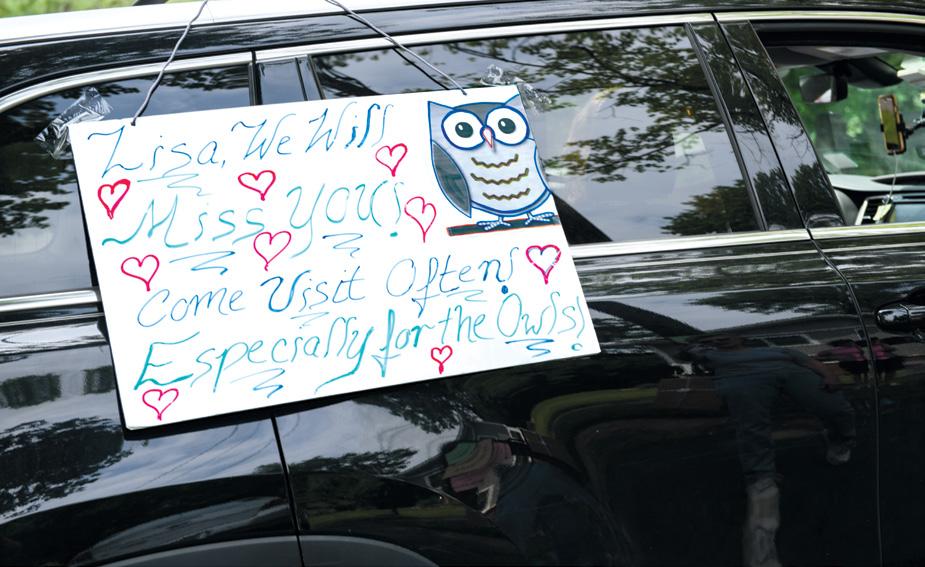 Lisa, We Will
Miss YOU!
Come Visit Often!
Especially for the Owls!